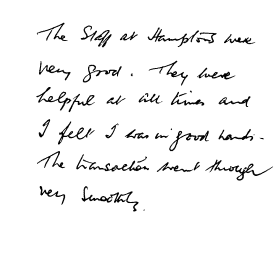 The Staff at Hamptons were
very good. They were
helpful at all times and
I felt I was in good hands.
The transaction went through
very smoothly.